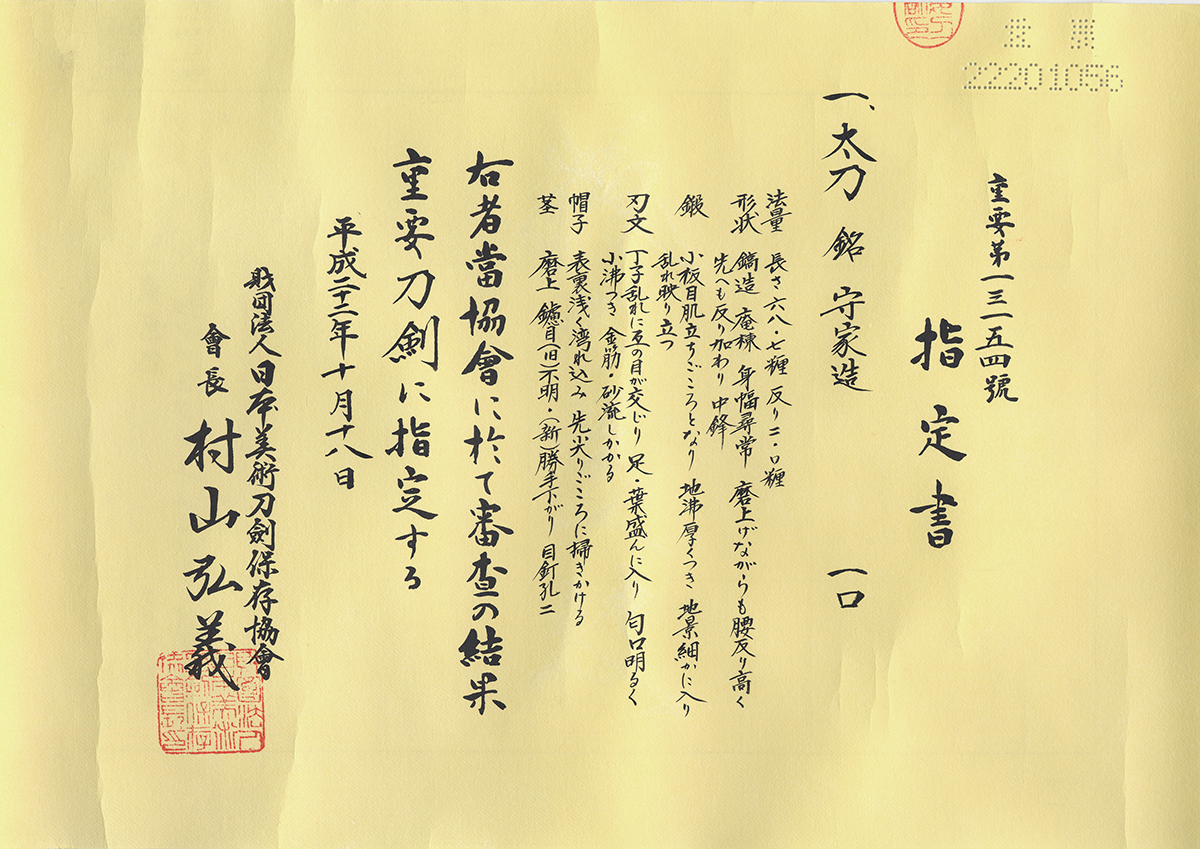 22201056
重要第一三一五四號
指定書
一、太刀 銘 守家造 一口
法量 長さ六八・七糎 反り二・〇糎
形状 鎬造 庵棟 身幅尋常 磨上げながらも腰反り高く
先へも反り加わり 中鋒
鍛 小板目肌立ちごころとなり 地沸厚くつき 地景細かに入り
乱れ映り立つ
刃文 丁子乱れに互の目が交じり 足・葉盛んに入り 匂口明るく
小沸つき 金筋・砂流しかかる
帽子 表裏浅く湾れ込み 先尖りごころに掃きかける
茎 磨上 鑢目(旧)不明・(新)勝手下がり 目釘孔二
右者當協會に於て審査の結果
重要刀劍に指定する
平成二十二年十月十八日
財団法人日本美術刀劍保存協會
會長 村山弘義